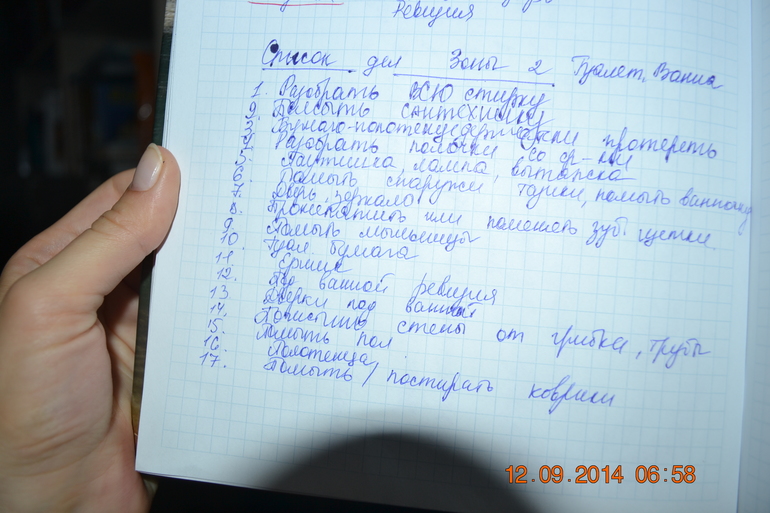 Ревизия
Список дел Зоны 2 Туалет, Ванна
1. Разобрать ВСЮ стирку
2. Помыть сантехнику
3. Бумаго-полотенцедержатели протереть
4. Разобрать полочки со ср-ми
5. Паутинка, лампа, вытяжка
6. Помыть снаружи тазики, помыть ванночку
7. Дверь, зеркало
8. Прокипятить или поменять зуб. щетки
9. Помыть мыльницы
10. Туал. бумага
11. Ершик
12. Под ванной ревизия
13. Дверки под ванной
14. Почистить стены от грибка, трубы
15. Помыть пол
16. Полотенца
17. Помыть/постирать коврики
12.09.2014 06:58